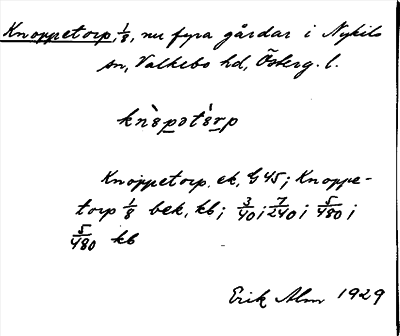 Knoppetorp, 1/8, nu fyra gårdar i Nykils
sn, Valkebo hd, Österg. l.
knò̀pətòrp
Knoppetorp, ek, G45; Knoppe-
torp 1/8 bek, kb; 3/40; 7/240; 5/480;
5/480 kb
Erik Alm 1929